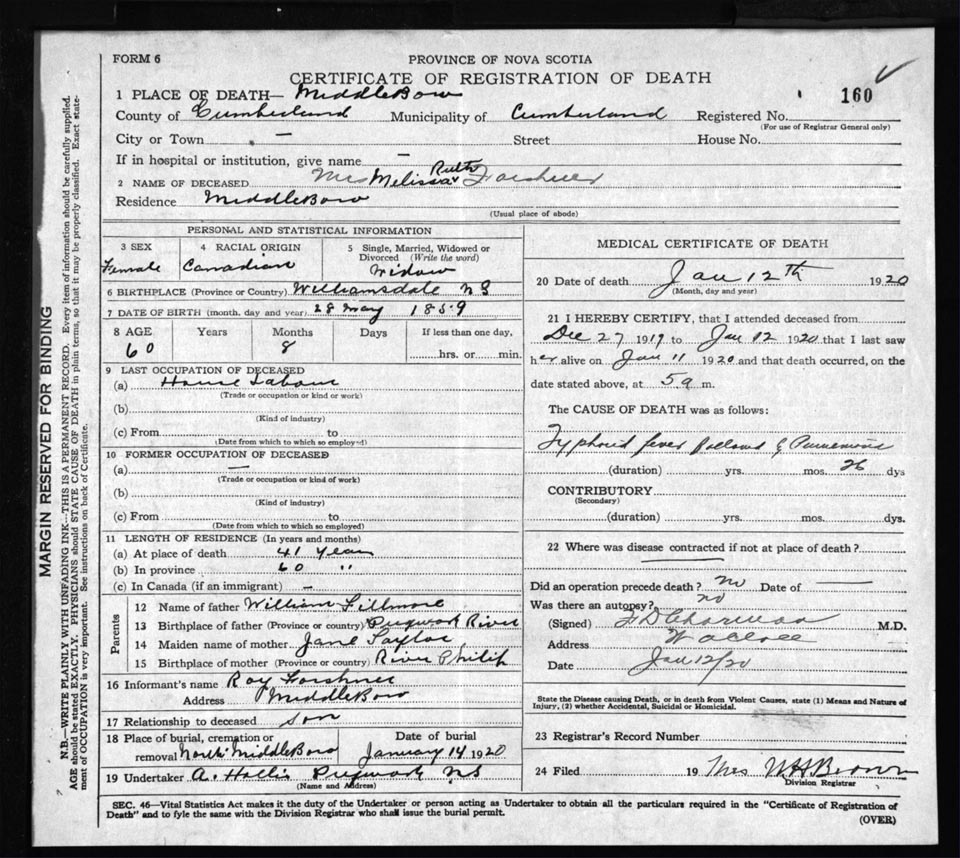 FORM 6
PROVINCE OF NOVA SCOTIA
CERTIFICATE OF REGISTRATION OF DEATH
160
1 PLACE OF DEATH— MiddleBoro
County of Cumberland Municipality of Cumberland Registered No.
(For use of Registrar General only)
City or Town — Street House No.
If in hospital or institution, give name —
2 NAME OF DECEASED Mrs Melissa Ruth Forshner
Residence MiddleBoro
(Usual place of abode)
PERSONAL AND STATISTICAL INFORMATION
3 SEX 4 RACIAL ORIGIN 5 Single, Married, Widowed or Divorced (Write the word)
Female Canadian Widow
6 BIRTHPLACE (Province or Country) Williamsdale NS
7 DATE OF BIRTH (month, day and year) 28 May 1859
8 AGE Years Months Days If less than one day,
60 8 hrs. or min.
9 LAST OCCUPATION OF DECEASED
(a) House Labour
(Trade or occupation or kind or work)
(b)
(Kind of industry)
(c) From to
(Date from which to which so employed)
10 FORMER OCCUPATION OF DECEASED
(a) —
(Trade or occupation or kind of work)
(b)
(Kind of industry)
(c) From to
(Date from which to which so employed)
11 LENGTH OF RESIDENCE (In years and months)
(a) At place of death 41 years
(b) In province 60 "
(c) In Canada (if an immigrant) —
Parents
12 Name of father William Fillmore
13 Birthplace of father (Province or country) Pugwash River
14 Maiden name of mother Jane Taylor
15 Birthplace of mother (Province or country) River Philip
16 Informant's name Roy Forshner
Address MiddleBoro
17 Relationship to deceased son
18 Place of burial, cremation or removal North MiddleBoro Date of burial January 14 1920
19 Undertaker A. Hollis Pugwash NS
(Name and Address)
MEDICAL CERTIFICATE OF DEATH
20 Date of death Jan 12th 1920
(Month, day and year)
21 I HEREBY CERTIFY, that I attended deceased from
Dec 27 1919 to Jan 12 1920 that I last saw
her alive on Jan 11 1920 and that death occurred, on the
date stated above, at 5 a m.
The CAUSE OF DEATH was as follows:
Typhoid fever followed by Pneumonia
(duration) yrs. mos. 26 dys
CONTRIBUTORY
(Secondary)
(duration) yrs. mos. dys.
22 Where was disease contracted if not at place of death?
Did an operation precede death? no Date of —
Was there an autopsy? no
(Signed) M.D.
Address Wallace
Date Jan 12/20
State the Disease causing Death, or in death from Violent Causes, state (1) Means and Nature of
Injury, (2) whether Accidental, Suicidal or Homicidal.
23 Registrar's Record Number
24 Filed 19 Mrs W H Brown
Division Registrar
SEC. 46—Vital Statistics Act makes it the duty of the Undertaker or person acting as Undertaker to obtain all the particulars required in the "Certificate of Registration of
Death" and to fyle the same with the Division Registrar who shall issue the burial permit.
(OVER)
MARGIN RESERVED FOR BINDING
N.B.—WRITE PLAINLY WITH UNFADING INK—THIS IS A PERMANENT RECORD. Every item of information should be carefully supplied.
AGE should be stated EXACTLY. PHYSICIANS should STATE CAUSE OF DEATH in plain terms, so that it may be properly classified. Exact state-
ment of OCCUPATION is very important. See instructions on back of Certificate.